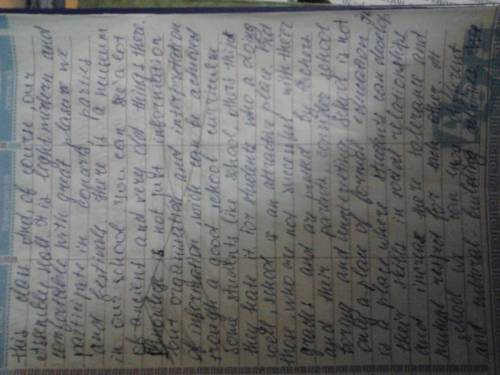 this class and of course our
assembly hall it is light modern and
comfortable with great pleasure we
participate in concerts parties
and festivals there is a museum
in our school you can see a lot
of ancient and very old things there
Knowledge is not just information
but organisation and interpretation
of information wich can be achieved
through a good school curriculum
some students like school others think
they hate it for students who a doing
well school is an attractive place but
those who are not successful with there
grades and are named by teachers
and their parents consider school
boring and uninteresting School is not
only a place of formal education it
is a place where students can develop
their skills in social relationships
and increase more tolerance and
mutual respect for each other at
school we can
and school building